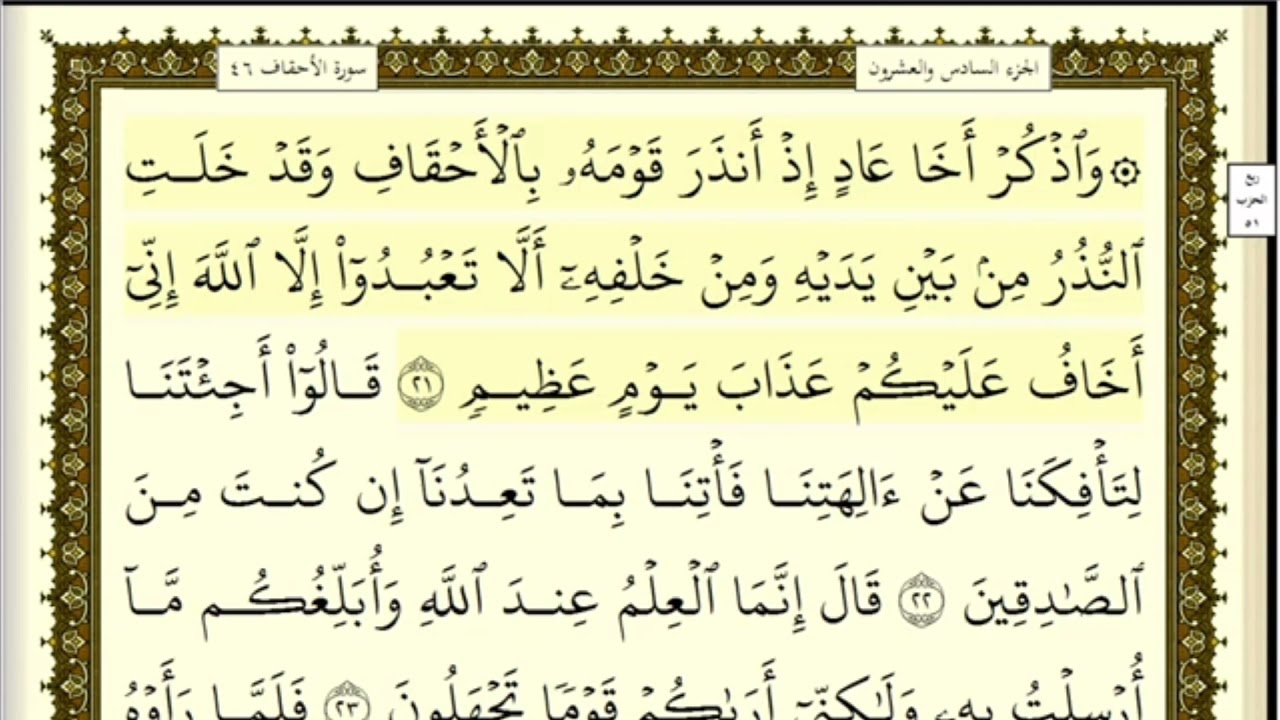 الجزء السادس والعشرون
سورة الأحقاف ٤٦
ربع
الحزب
٥١
۞ وَٱذۡكُرۡ أَخَا عَادٍ إِذۡ أَنذَرَ قَوۡمَهُۥ بِٱلۡأَحۡقَافِ وَقَدۡ خَلَتِ
ٱلنُّذُرُ مِنۢ بَيۡنِ يَدَيۡهِ وَمِنۡ خَلۡفِهِۦٓ أَلَّا تَعۡبُدُوٓاْ إِلَّا ٱللَّهَ إِنِّيٓ
أَخَافُ عَلَيۡكُمۡ عَذَابَ يَوۡمٍ عَظِيمٖ ٢١ قَالُوٓاْ أَجِئۡتَنَا
لِتَأۡفِكَنَا عَنۡ ءَالِهَتِنَا فَأۡتِنَا بِمَا تَعِدُنَآ إِن كُنتَ مِنَ
ٱلصَّٰدِقِينَ ٢٢ قَالَ إِنَّمَا ٱلۡعِلۡمُ عِندَ ٱللَّهِ وَأُبَلِّغُكُم مَّآ
أُرۡسِلۡتُ بِهِۦ وَلَٰكِنِّيٓ أَرَىٰكُمۡ قَوۡمٗا تَجۡهَلُونَ ٢٣ فَلَمَّا رَأَوۡهُ